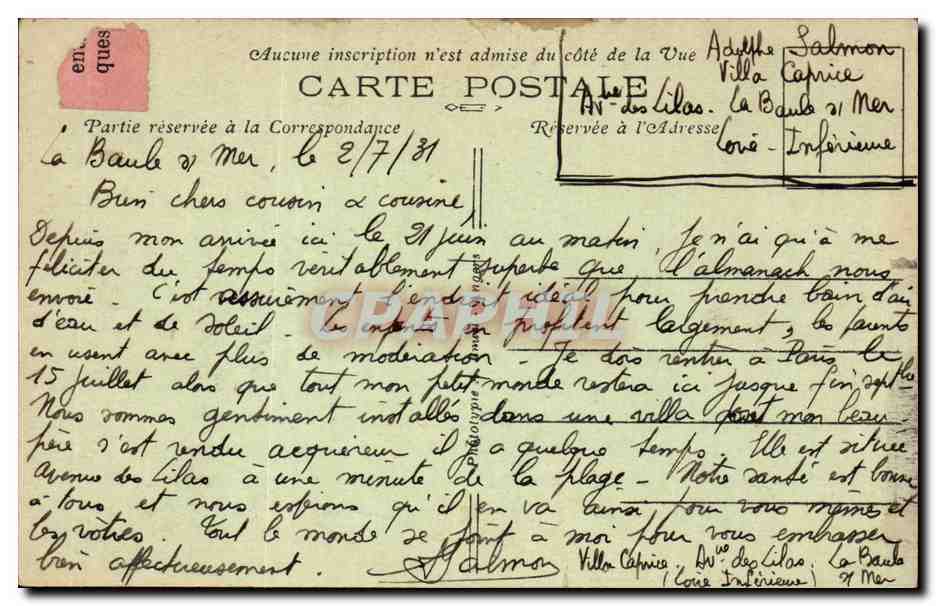 ent
ques
Aucune inscription n'est admise du côté de la Vue
CARTE POSTALE
Partie réservée à la Correspondance
Réservée à l'Adresse
Adolphe Salmon
Villa Caprice
Av^ue des Lilas. La Baule s/ Mer
Loire-Inférieure
La Baule s/ Mer, le 2/7/31
Bien chers cousin & cousine,
Depuis mon arrivée ici le 21 juin au matin, je n'ai qu'à me
féliciter du temps véritablement superbe que l'almanach nous
envoie. C'est assurément l'endroit idéal pour prendre bain d'air
d'eau et de soleil. Les enfants en profitent largement, les parents
en usent avec plus de modération. Je dois rentrer à Paris le
15 juillet alors que tout mon petit monde restera ici jusque fin sept^bre
Nous sommes gentiment installés dans une villa dont mon beau
père s'est rendu acquéreur il y a quelque temps. Elle est située
Avenue des Lilas à une minute de la plage. Notre santé est bonne
à tous et nous espérons qu'il en va ainsi pour vous mêmes et
les vôtres. Tout le monde se joint à moi pour vous embrasser
bien affectueusement.
ASalmon
Villa Caprice. Av^ue des Lilas. La Baule
(Loire Inférieure) s/ Mer
Phototypie
CPAPHIL